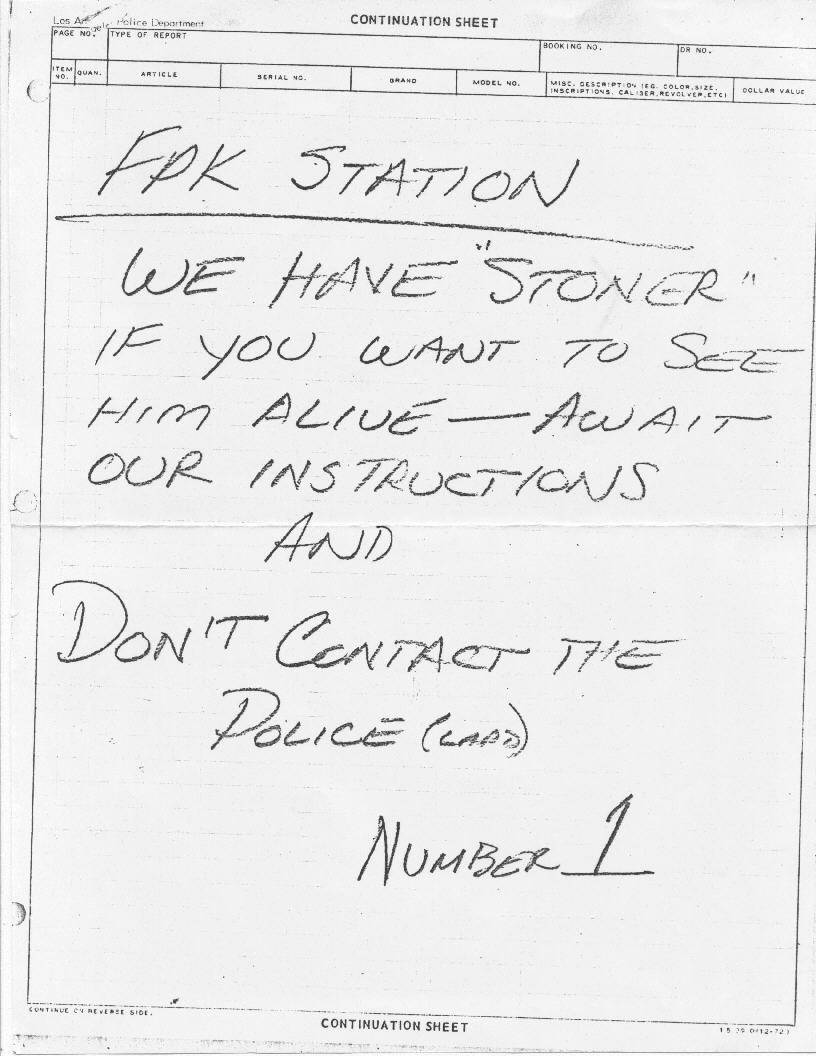 Los Angeles Police Department
CONTINUATION SHEET
PAGE NO.
TYPE OF REPORT
BOOKING NO.
DR NO.
ITEM NO.
QUAN.
ARTICLE
SERIAL NO.
BRAND
MODEL NO.
MISC. DESCRIPTION (EG. COLOR, SIZE,
INSCRIPTIONS, CALIBER, REVOLVER, ETC)
DOLLAR VALUE
FPK STATION
WE HAVE "STONER"
IF YOU WANT TO SEE
HIM ALIVE — AWAIT
OUR INSTRUCTIONS
AND
DON'T CONTACT THE
POLICE (LAPD)
NUMBER 1
CONTINUE ON REVERSE SIDE.
CONTINUATION SHEET